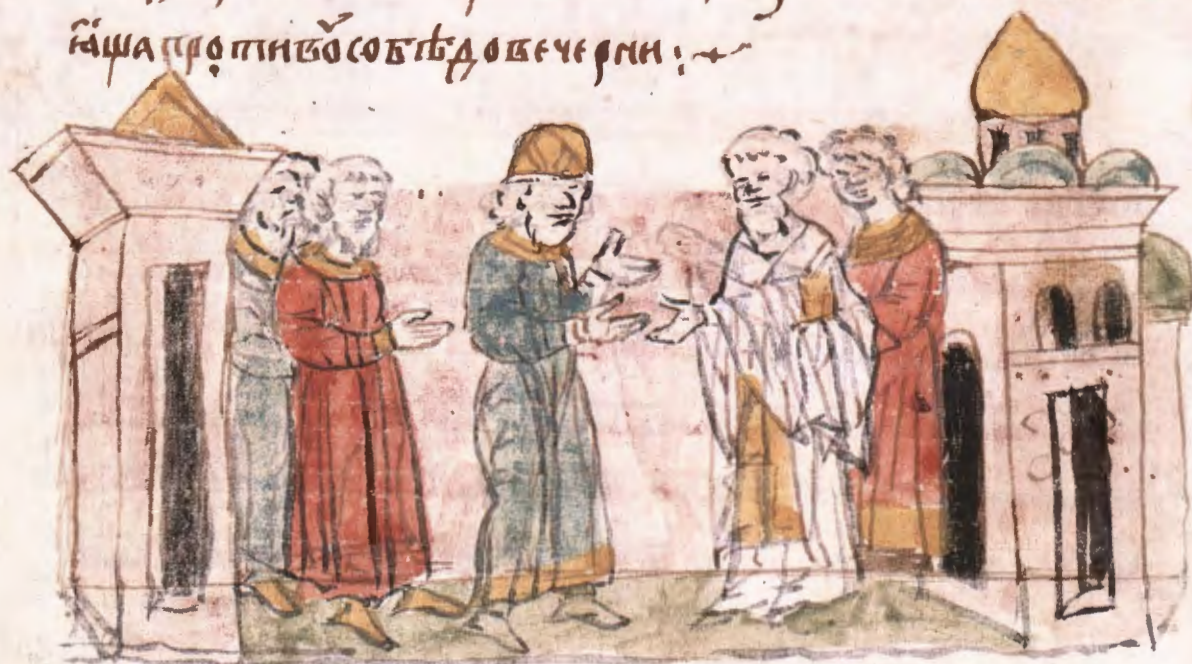 ꙗша противо̑ собѣ до вечерни :